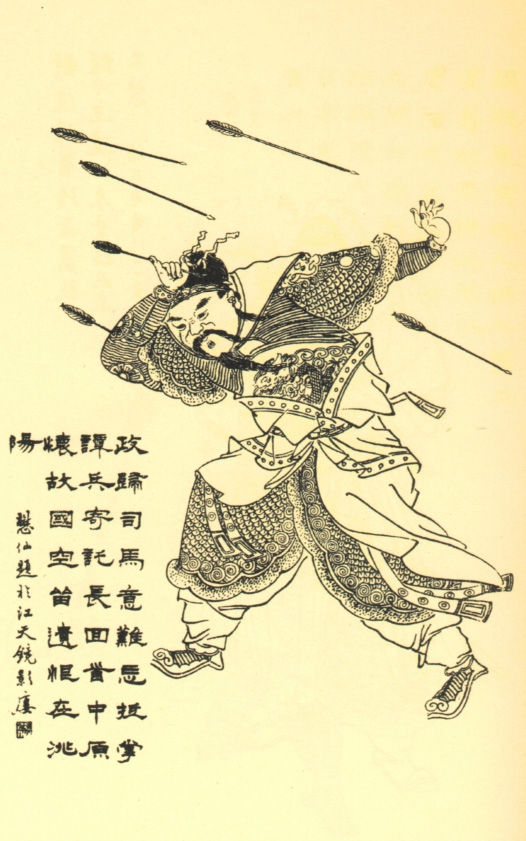 政歸司馬意難忘抵掌
譚兵寄託長回首中原
懷故國空留遺恨在洮
陽
仙題於江天鏡影廔